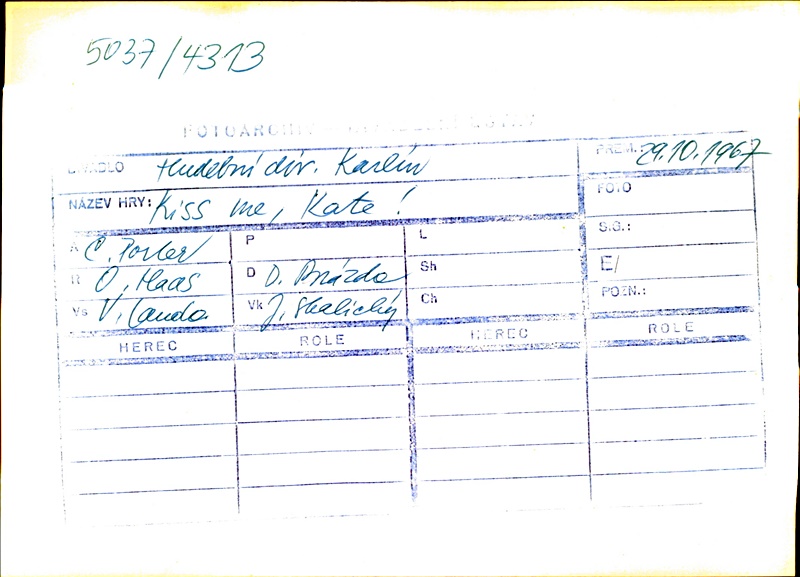 5037/4313
FOTOARCHIV
DIVADLO Hudební div. Karlín PREM.: 29.10.1967
NÁZEV HRY: Kiss me, Kate! FOTO
A C. Porter P L S.G.:
R O. Haas D D. Brázda Sh E/
Vs V. Landa Vk J. Skalický Ch POZN.:
HEREC ROLE HEREC ROLE